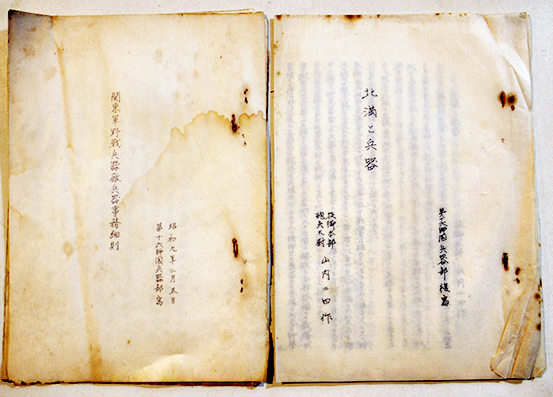 関東軍野戦兵器廠兵器事務細則
昭和九年二月五日
第十六師団兵器部写
北満と兵器
第十六師団兵器部複写
技術本部
砲兵大尉 山内二四作